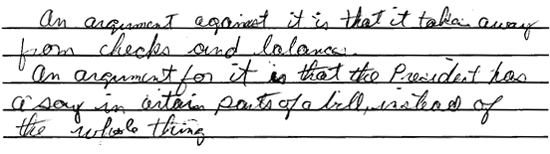 An argument against it is that it takes away
from checks and balances.
An argument for it is that the President has
a say in certain parts of a bill, instead of
the whole thing